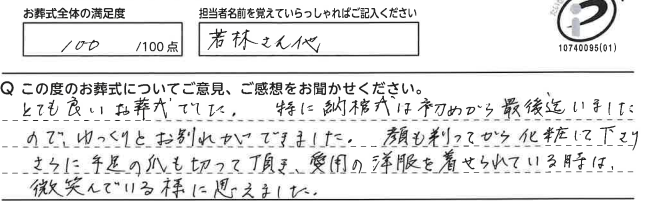 お葬式全体の満足度
担当者名前を覚えていらっしゃればご記入ください
100 /100点
若林さん他
10740095(01)
Q この度のお葬式についてご意見、ご感想をお聞かせください。
とても良いお葬式でした。 特に納棺式は初めから最後迄いました
ので、ゆっくりとお別れができました。 顔も剃ってから化粧して下さり
さらに手足の爪も切って頂き、愛用の洋服を着せられている時は、
微笑んでいる様に思えました。